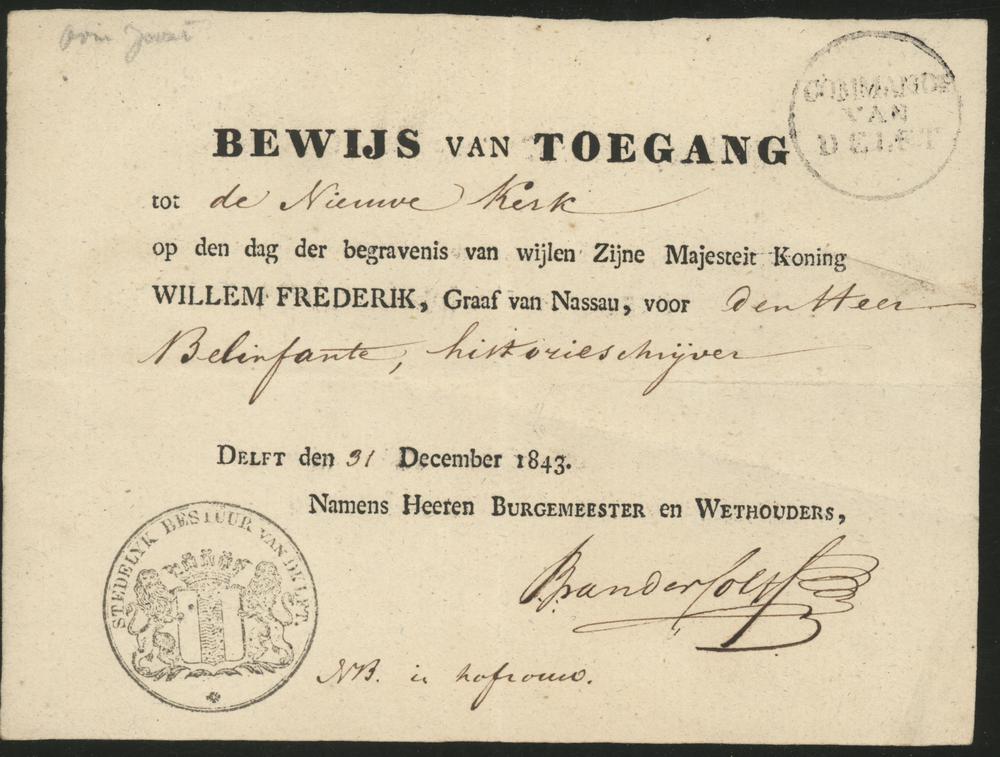 COMMANDT
VAN
DELFT
BEWIJS VAN TOEGANG
tot de Nieuwe Kerk
op den dag der begravenis van wijlen Zijne Majesteit Koning
WILLEM FREDERIK, Graaf van Nassau, voor den Heer
Belinfante, historieschrijver
DELFT den 31 December 1843.
Namens Heeren BURGEMEESTER en WETHOUDERS,
STEDELYK BESTUUR VAN DELFT.
NB. in hofrouw.